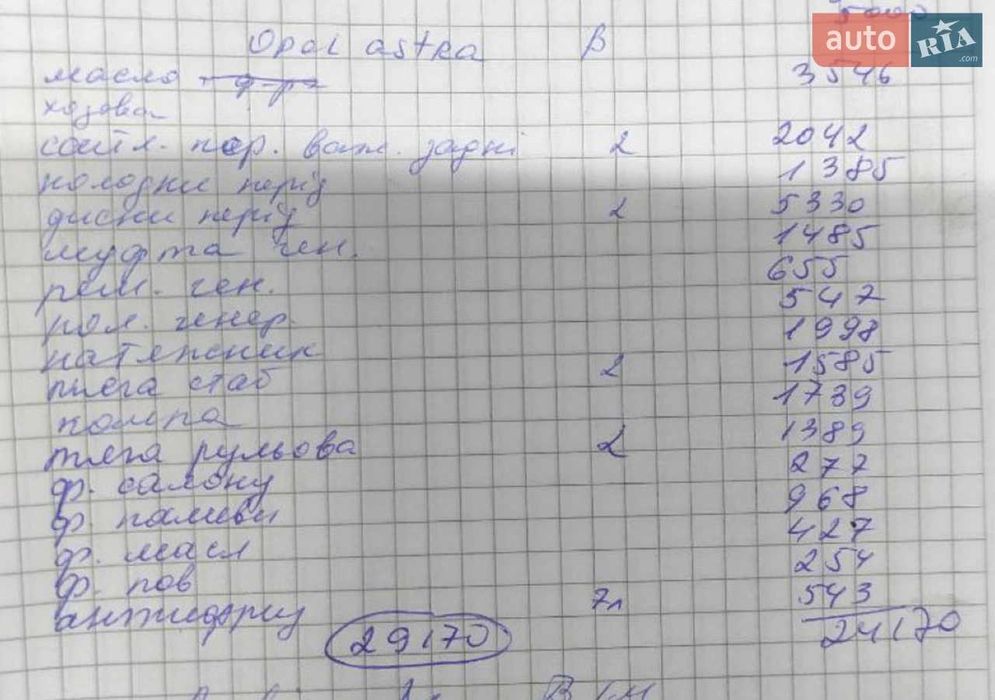 5000
auto RIA .com
Opel astra B
масло 3546
ходова
сайл. пер. важ. задні 2 2042
колодки перід 1385
диски перід 2 5330
муфта ген. 1485
рем. ген. 655
рол. генер. 547
натяжник 1998
тяга стаб 2 1585
помпа 1739
тяга рульова 2 1389
ф. салону 277
ф. паливн 968
ф. масл 427
ф. пов 254
антифриз 7л 543
29170 24170